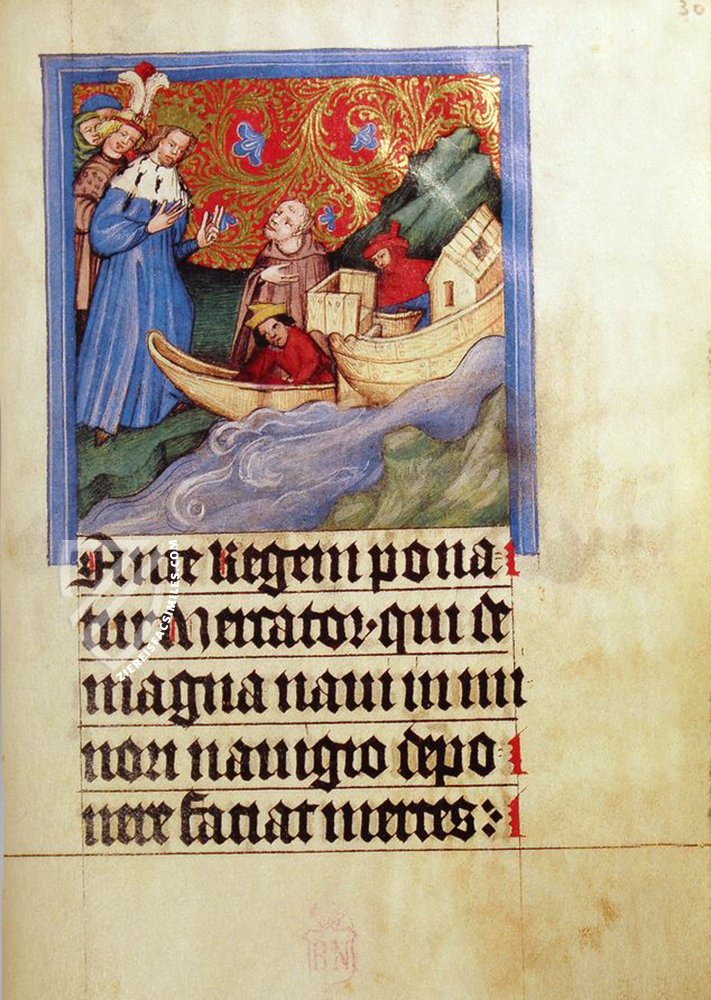 30
Ante Regem pona
tur Mercator, qui de
magna naui in mi
nori nauigio depo
nere faciat merces:
ZIEREIS FACSIMILES.COM
BN